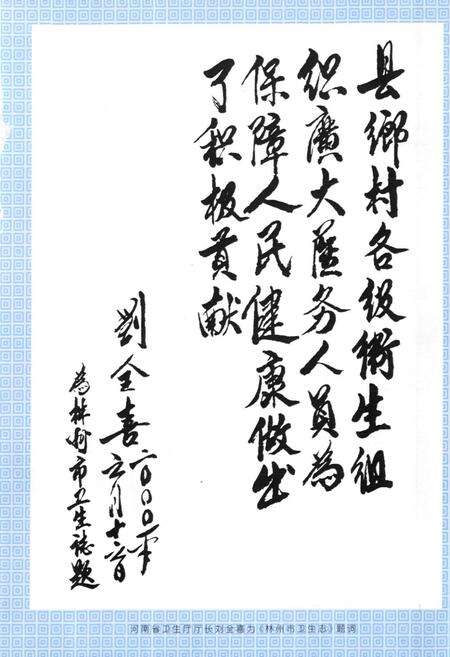 县鄉村各级衛生组
织廣大醫务人員為
保障人民健康做出
了积极貢献
劉全喜 二〇〇〇年
六月十六日
為林州市卫生誌題
河南省卫生厅厅长刘全喜为《林州市卫生志》题词